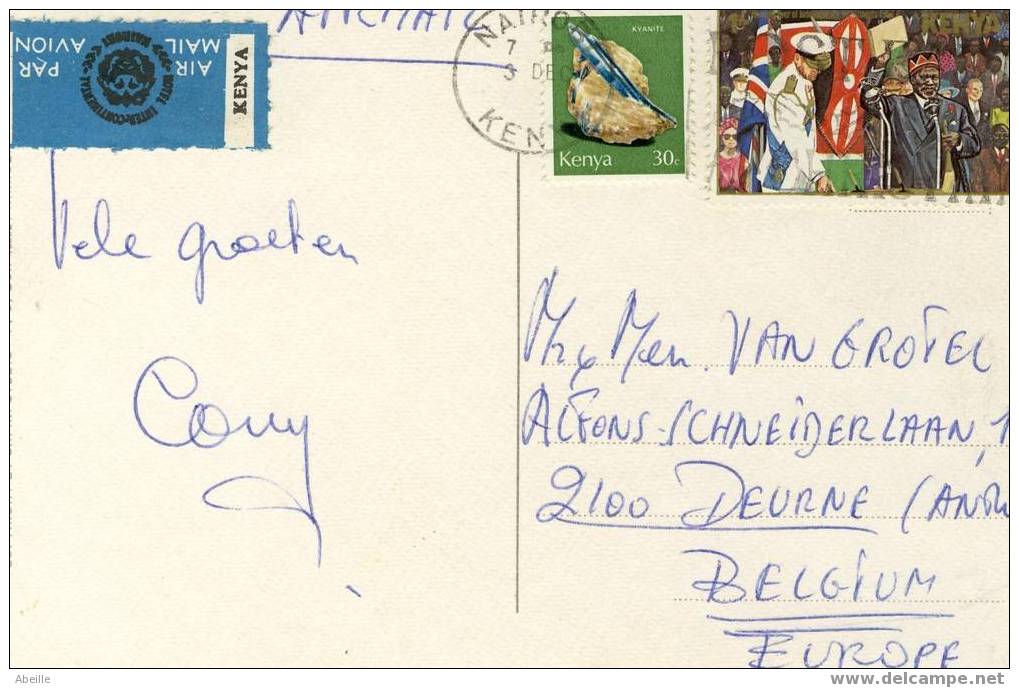 AIR MAIL
PAR AVION
HOTEL INTER-CONTINENTAL NAIROBI
KENYA
AIRMAIL
NAIRO
7
3 DEC
KEN
KYANITE
Kenya 30c
KENYA
Vele groeten
Conny
Mr & Mevr. VAN GROTEL
ALFONS-SCHNEIDERLAAN, 1
2100 DEURNE (ANTW
BELGIUM
EUROPE
Abeille
www.delcampe.net